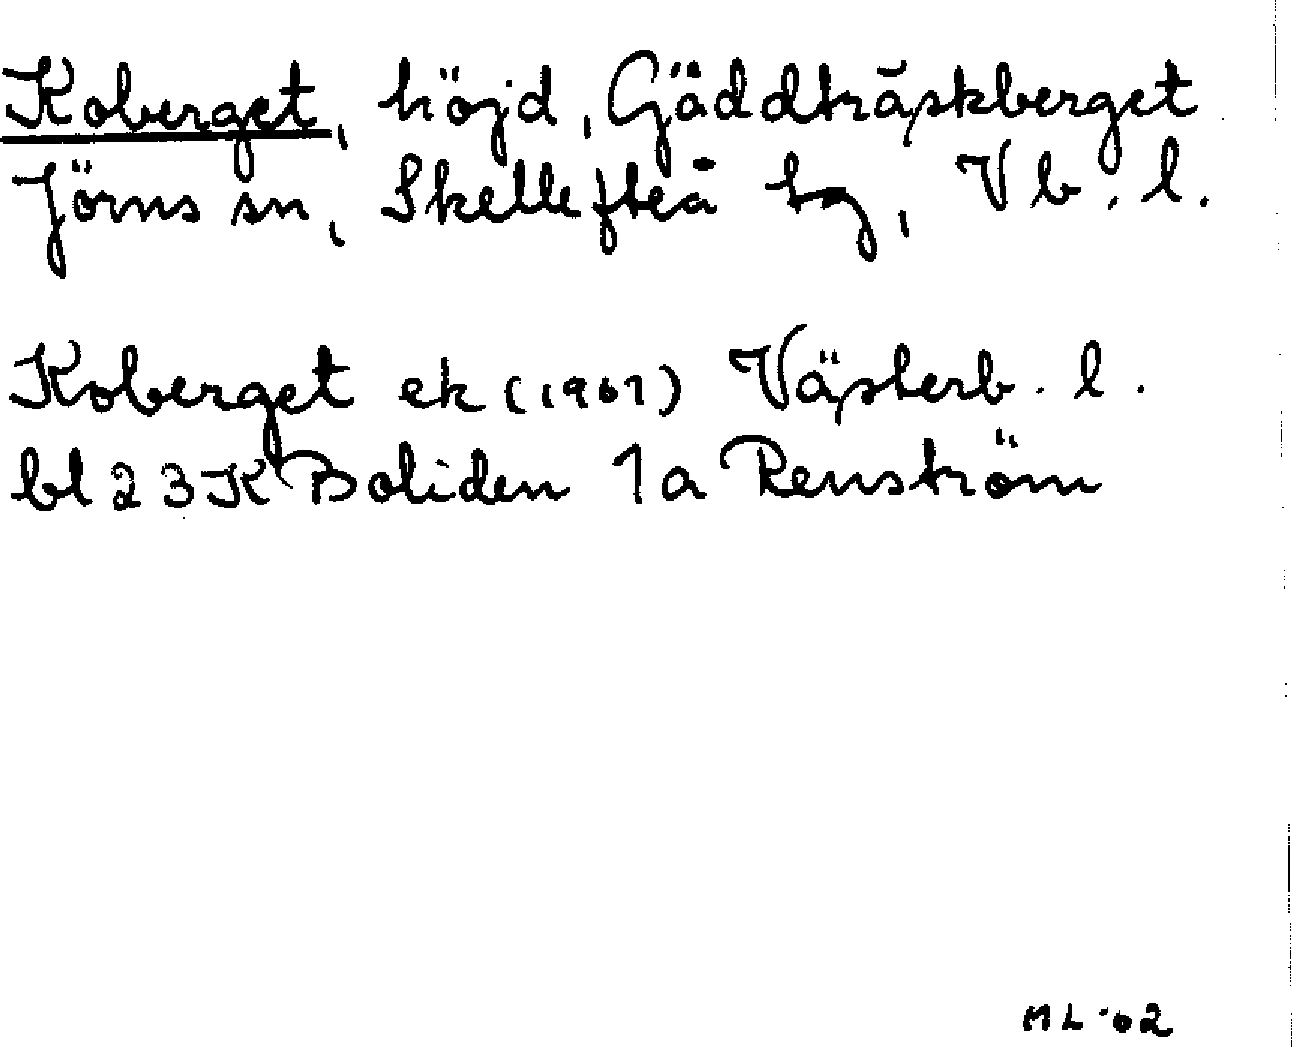 Koberget, höjd, Gäddträskberget
Jörns sn, Skellefteå tg, Vb. l.
Koberget ek (1961) Västerb. l.
bl 23K Boliden 1a Renström
ML -02